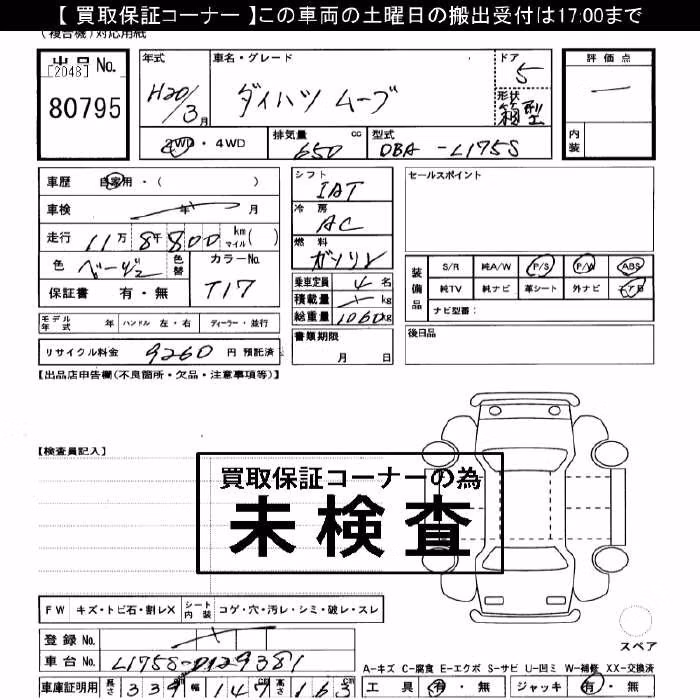 【 買取保証コーナー 】この車両の土曜日の搬出受付は17:00まで
(複合機)対応用紙
出品 No.
[2048]
80795
年式
H20/3月
車名・グレード
ダイハツ ムーブ
ドア
5
形状
箱型
評価点
内装
2WD ・ 4WD
排気量 cc
650
型式
DBA -L175S
車歴 自家用・( )
車検 年 月
走行 11万 8千 800 km マイル( )
色 ベージュ
色替
カラーNo.
T17
保証書 有・無
シフト
IAT
冷房
AC
燃料
ガソリン
乗車定員 4 名
積載量 kg
総重量 1060 kg
書類期限
月 日
セールスポイント
装備品
S/R 純A/W P/S P/W ABS
純TV 純ナビ 革シート 外ナビ エアB
ナビ型番:
後日品
モデル年式 年 ハンドル 左・右 ディーラー・並行
リサイクル料金 9260 円 預託済
【出品店申告欄(不良箇所・欠品・注意事項等)】
【検査員記入】
買取保証コーナーの為
未検査
FW キズ・トビ石・割レX シート内装 コゲ・穴・汚レ・シミ・破レ・スレ
登録 No.
車台 No. L175S-0129381
車庫証明用 長さ 339 cm 幅 147 cm 高さ 163 cm
スペア
A-キズ C-腐食 E-エクボ S-サビ U-凹ミ W-補修 XX-交換済
工具 有・無 ジャッキ 有・無